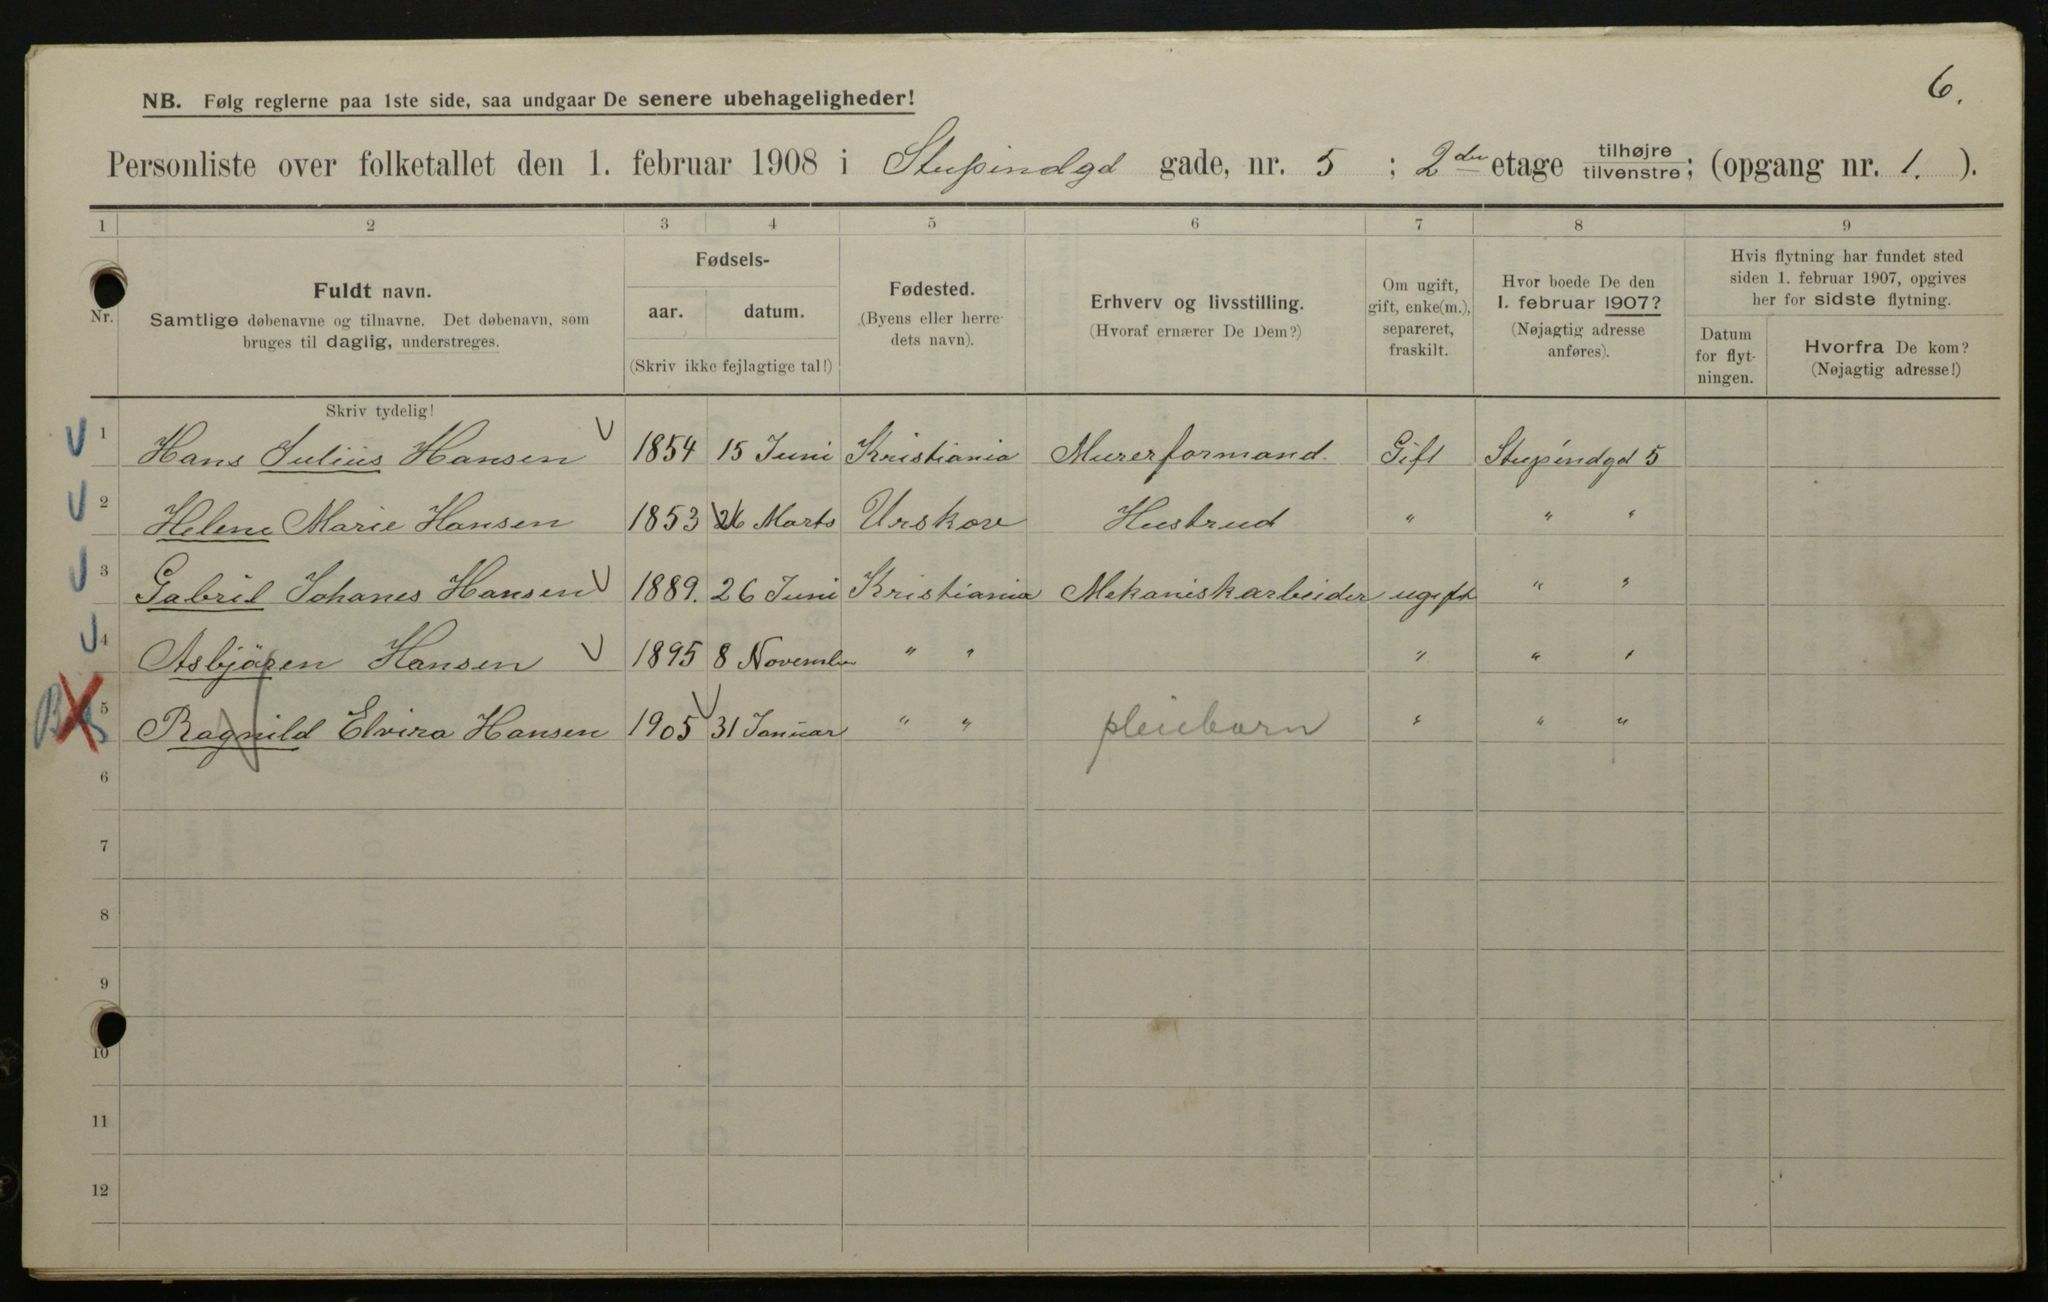 6.
NB. Følg reglerne paa 1ste side, saa undgaar De senere ubehageligheder!
Personliste over folketallet den 1. februar 1908 i Stupindgd gade, nr. 5 ; 2den etage tilhøjre tilvenstre; (opgang nr. 1. ).
1 2 3 4 5 6 7 8 9
Nr.
Fuldt navn.
Samtlige døbenavne og tilnavne. Det døbenavn, som
bruges til daglig, understreges.
Skriv tydelig!
Fødsels-
aar. datum.
(Skriv ikke fejlagtige tal!)
Fødested.
(Byens eller herre-
dets navn).
Erhverv og livsstilling.
(Hvoraf ernærer De Dem?)
Om ugift,
gift, enke(m.),
separeret,
fraskilt.
Hvor boede De den
1. februar 1907?
(Nøjagtig adresse
anføres).
Hvis flytning har fundet sted
siden 1. februar 1907, opgives
her for sidste flytning.
Datum
for flyt-
ningen.
Hvorfra De kom?
(Nøjagtig adresse!)
1 Hans Julius Hansen 1854 15 Juni Kristiania Murerformand. Gift Stupindgd 5
2 Helene Marie Hansen 1853 26 Marts Urskov Hustrud " " "
3 Gabriel Johanes Hansen 1889. 26 Juni Kristiania Mekaniskarbeider ugift " "
4 Asbjören Hansen 1895 8 November " " " " "
5 Ragnild Elvira Hansen 1905 31 Januar " " pleiebarn " " "
6
7
8
9
10
11
12